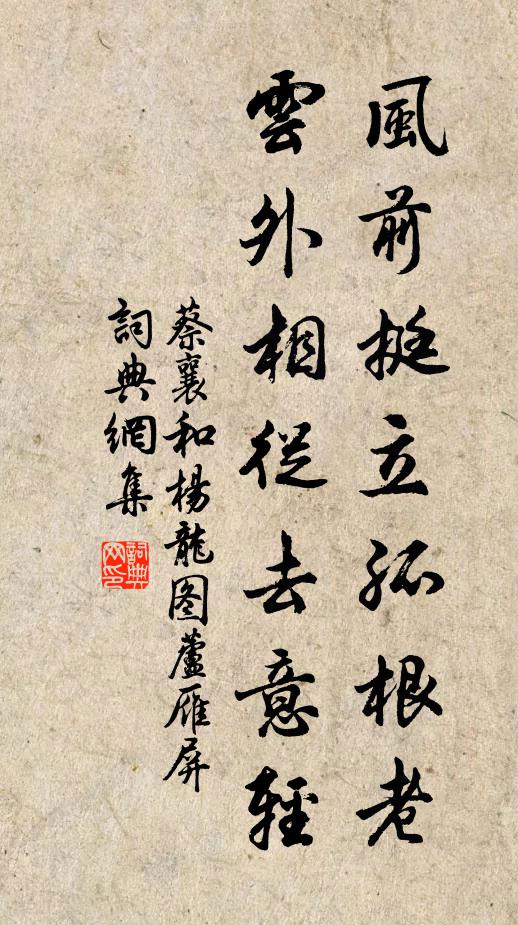 風前挺立孤根老
雲外相從去意輕
蔡襄和楊龍图蘆雁屏
詞典網集
詞典網印